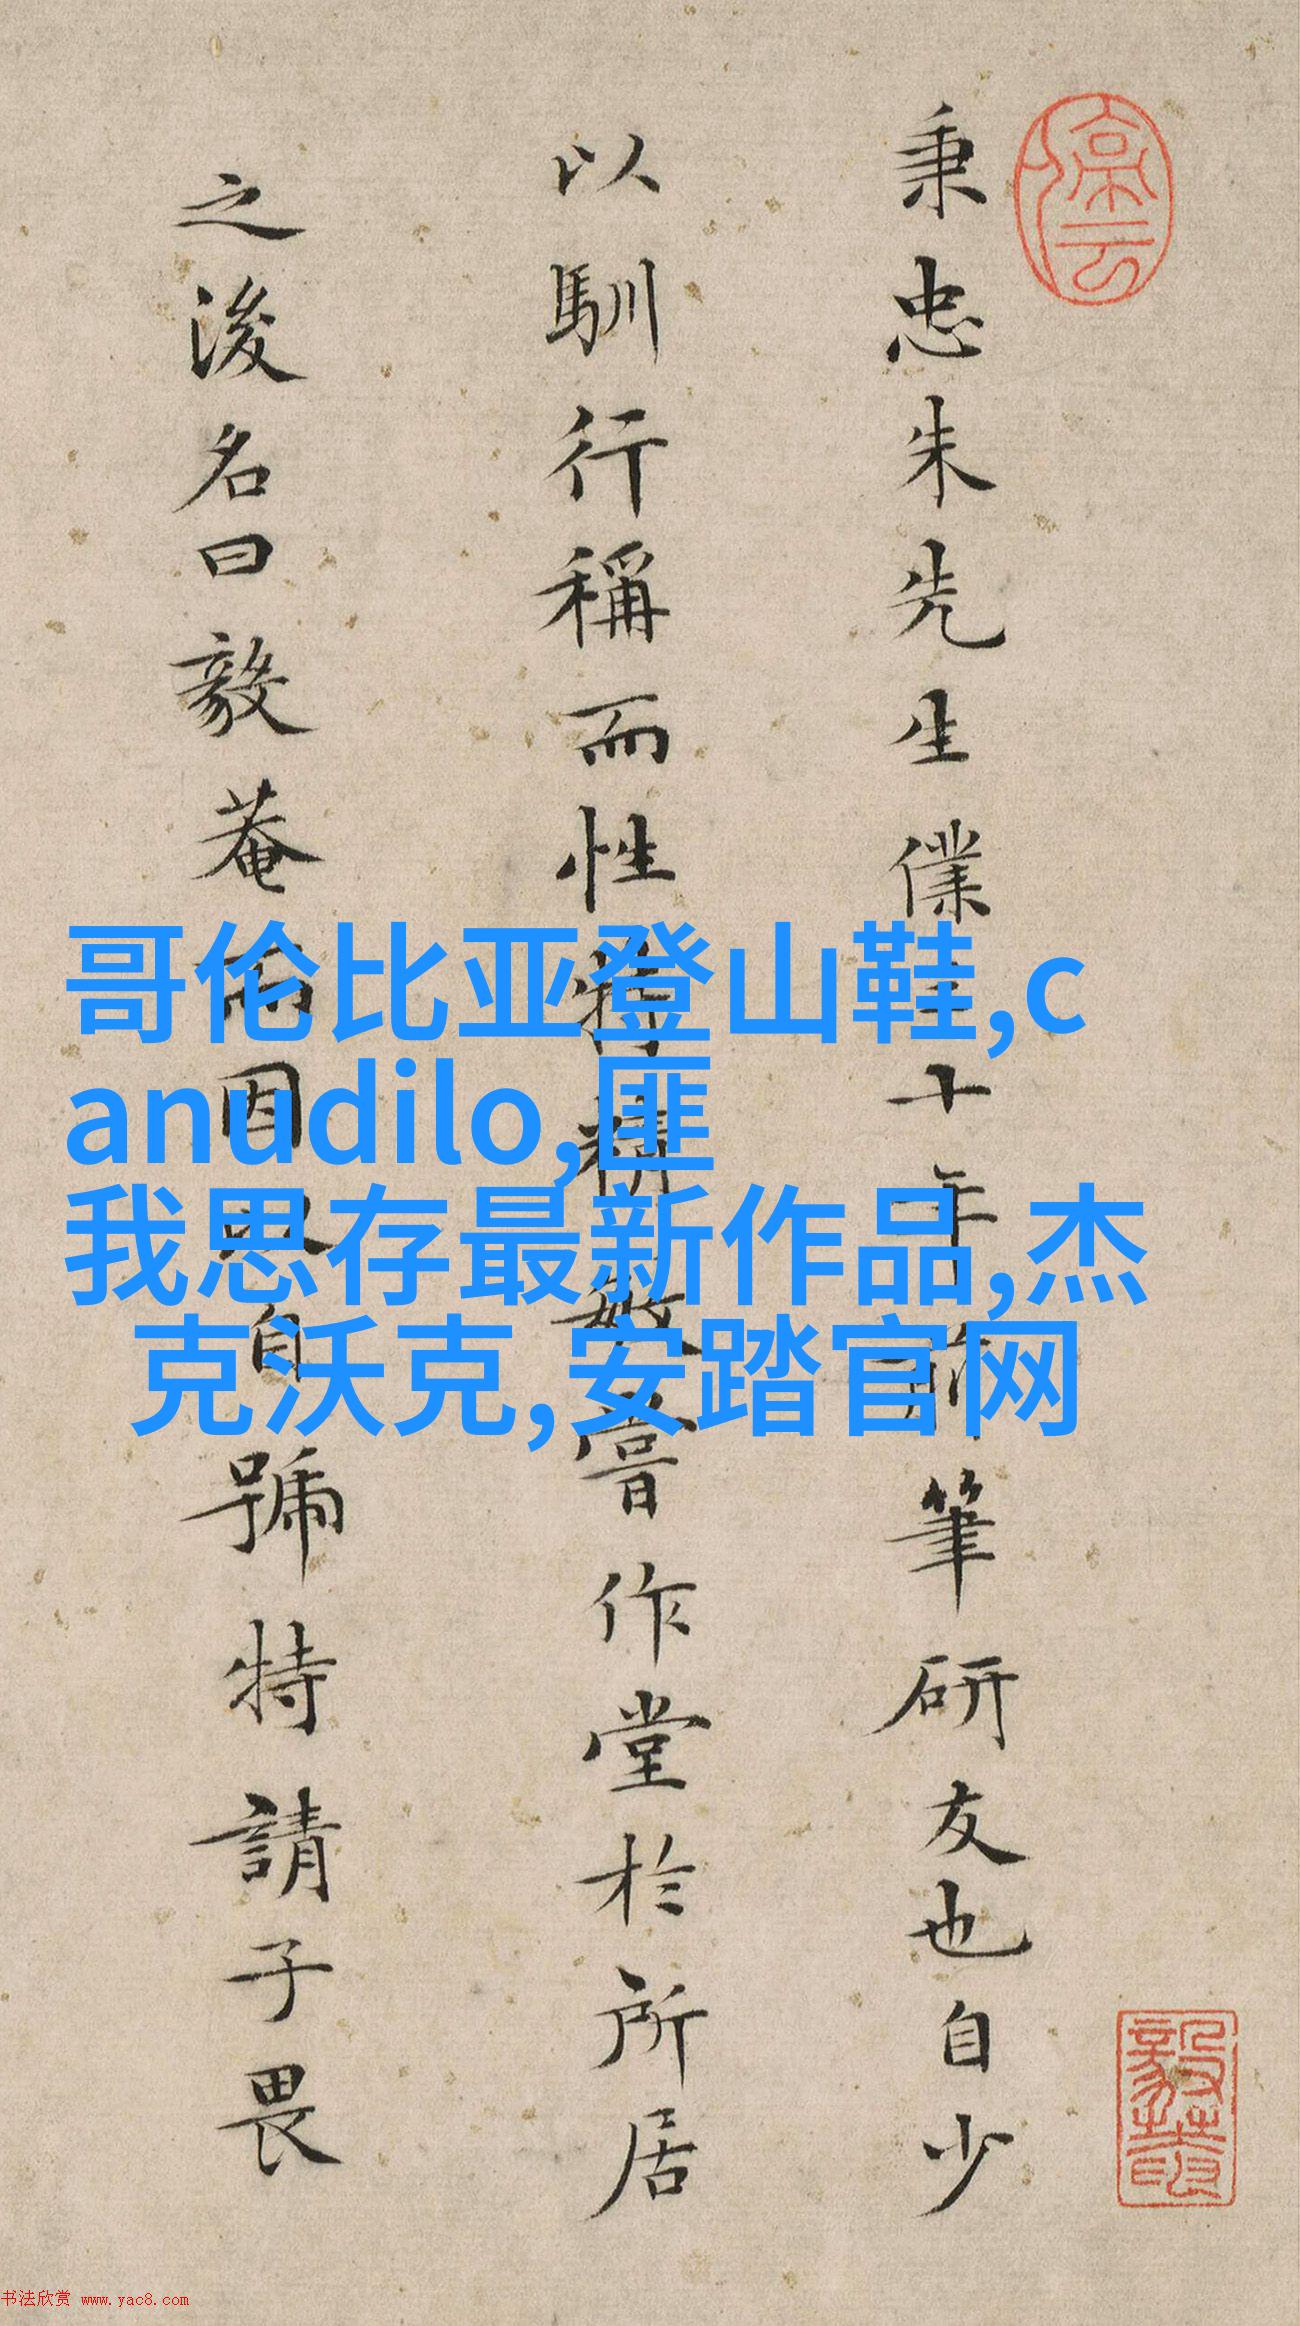 秉忠朱先生僕十年前筆研友也自少
以馴行稱而性特精敏嘗作堂於所居
之後名曰毅菴而因以自號特請子畏
哥伦比亚登山鞋,c
anudilo,匪
我思存最新作品,杰
克沃克,安踏官网
书法欣赏 www.yac8.com